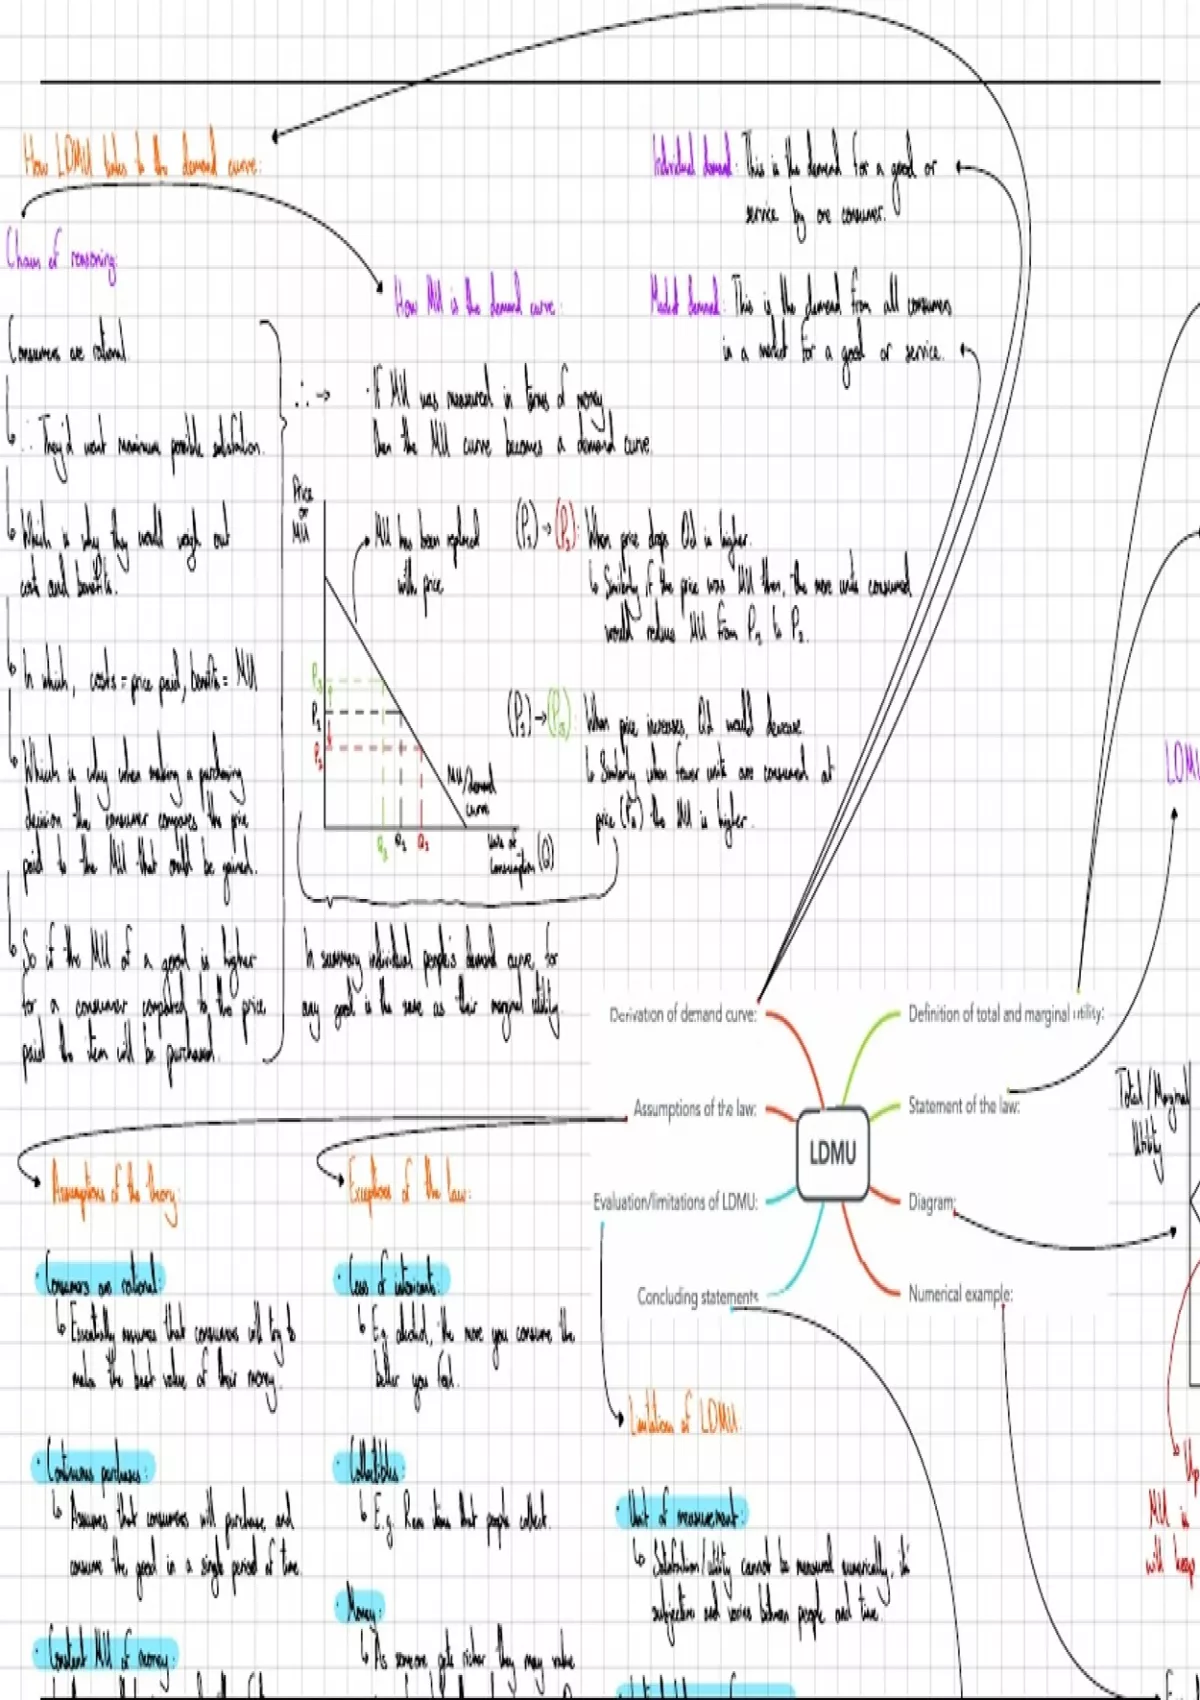 How LDMU links to the demand curve:
Chain of reasoning:
Consumers are rational.
∴ They'd want maximum possible satisfaction.
Which is why they would weigh out
costs and benefits.
In which, costs = price paid, benefits = MU
Which is why when making a purchasing
decision the consumer compares the price
paid to the MU that could be gained.
So if the MU of a good is higher
for a consumer compared to the price
paid the item will be purchased.
How MU is the demand curve:
∴ → · If MU was measured in terms of money
then the MU curve becomes a demand curve.
Price
or
MU
MU has been replaced
with price
P₃
P₁
P₂
MU/demand
curve
Q₃ Q₁ Q₂
consumption (Q)
(P₁) → (P₂): When price drops Qd is higher.
Similarly if the price was MU then, the more units consumed
would reduce MU from P₁ to P₂.
(P₁) → (P₃): When price increases, Qd would decrease
Similarly when fewer units are consumed at
price (P₃) the MU is higher.
In summary individual people's demand curve for
any good is the same as their marginal utility.
Individual demand: This is the demand for a good or
service by one consumer.
Market demand: This is the demand from all consumers
in a market for a good or service.
LDMU
Derivation of demand curve:
Assumptions of the law:
Evaluation/limitations of LDMU:
Concluding statements
LDMU
Definition of total and marginal utility:
Statement of the law:
Diagram:
Numerical example:
Total/Marginal
Utility
Assumptions of the theory:
· Consumers are rational:
Essentially assumes that consumers will try to
make the best value of their money.
· Continuous purchases:
Assumes that consumers will purchase and
consume the good in a single period of time.
· Constant MU of money:
Exceptions of the law:
· Case of intoxicants:
E.g. alcohol, the more you consume the
better you feel.
· Collectibles:
E.g. Rare items that people collect.
· Money:
As someone gets richer they may value
Limitations of LDMU:
· Unit of measurement:
Satisfaction/utility cannot be measured numerically, it's
subjective and varies between people and time.
MU is
will keep